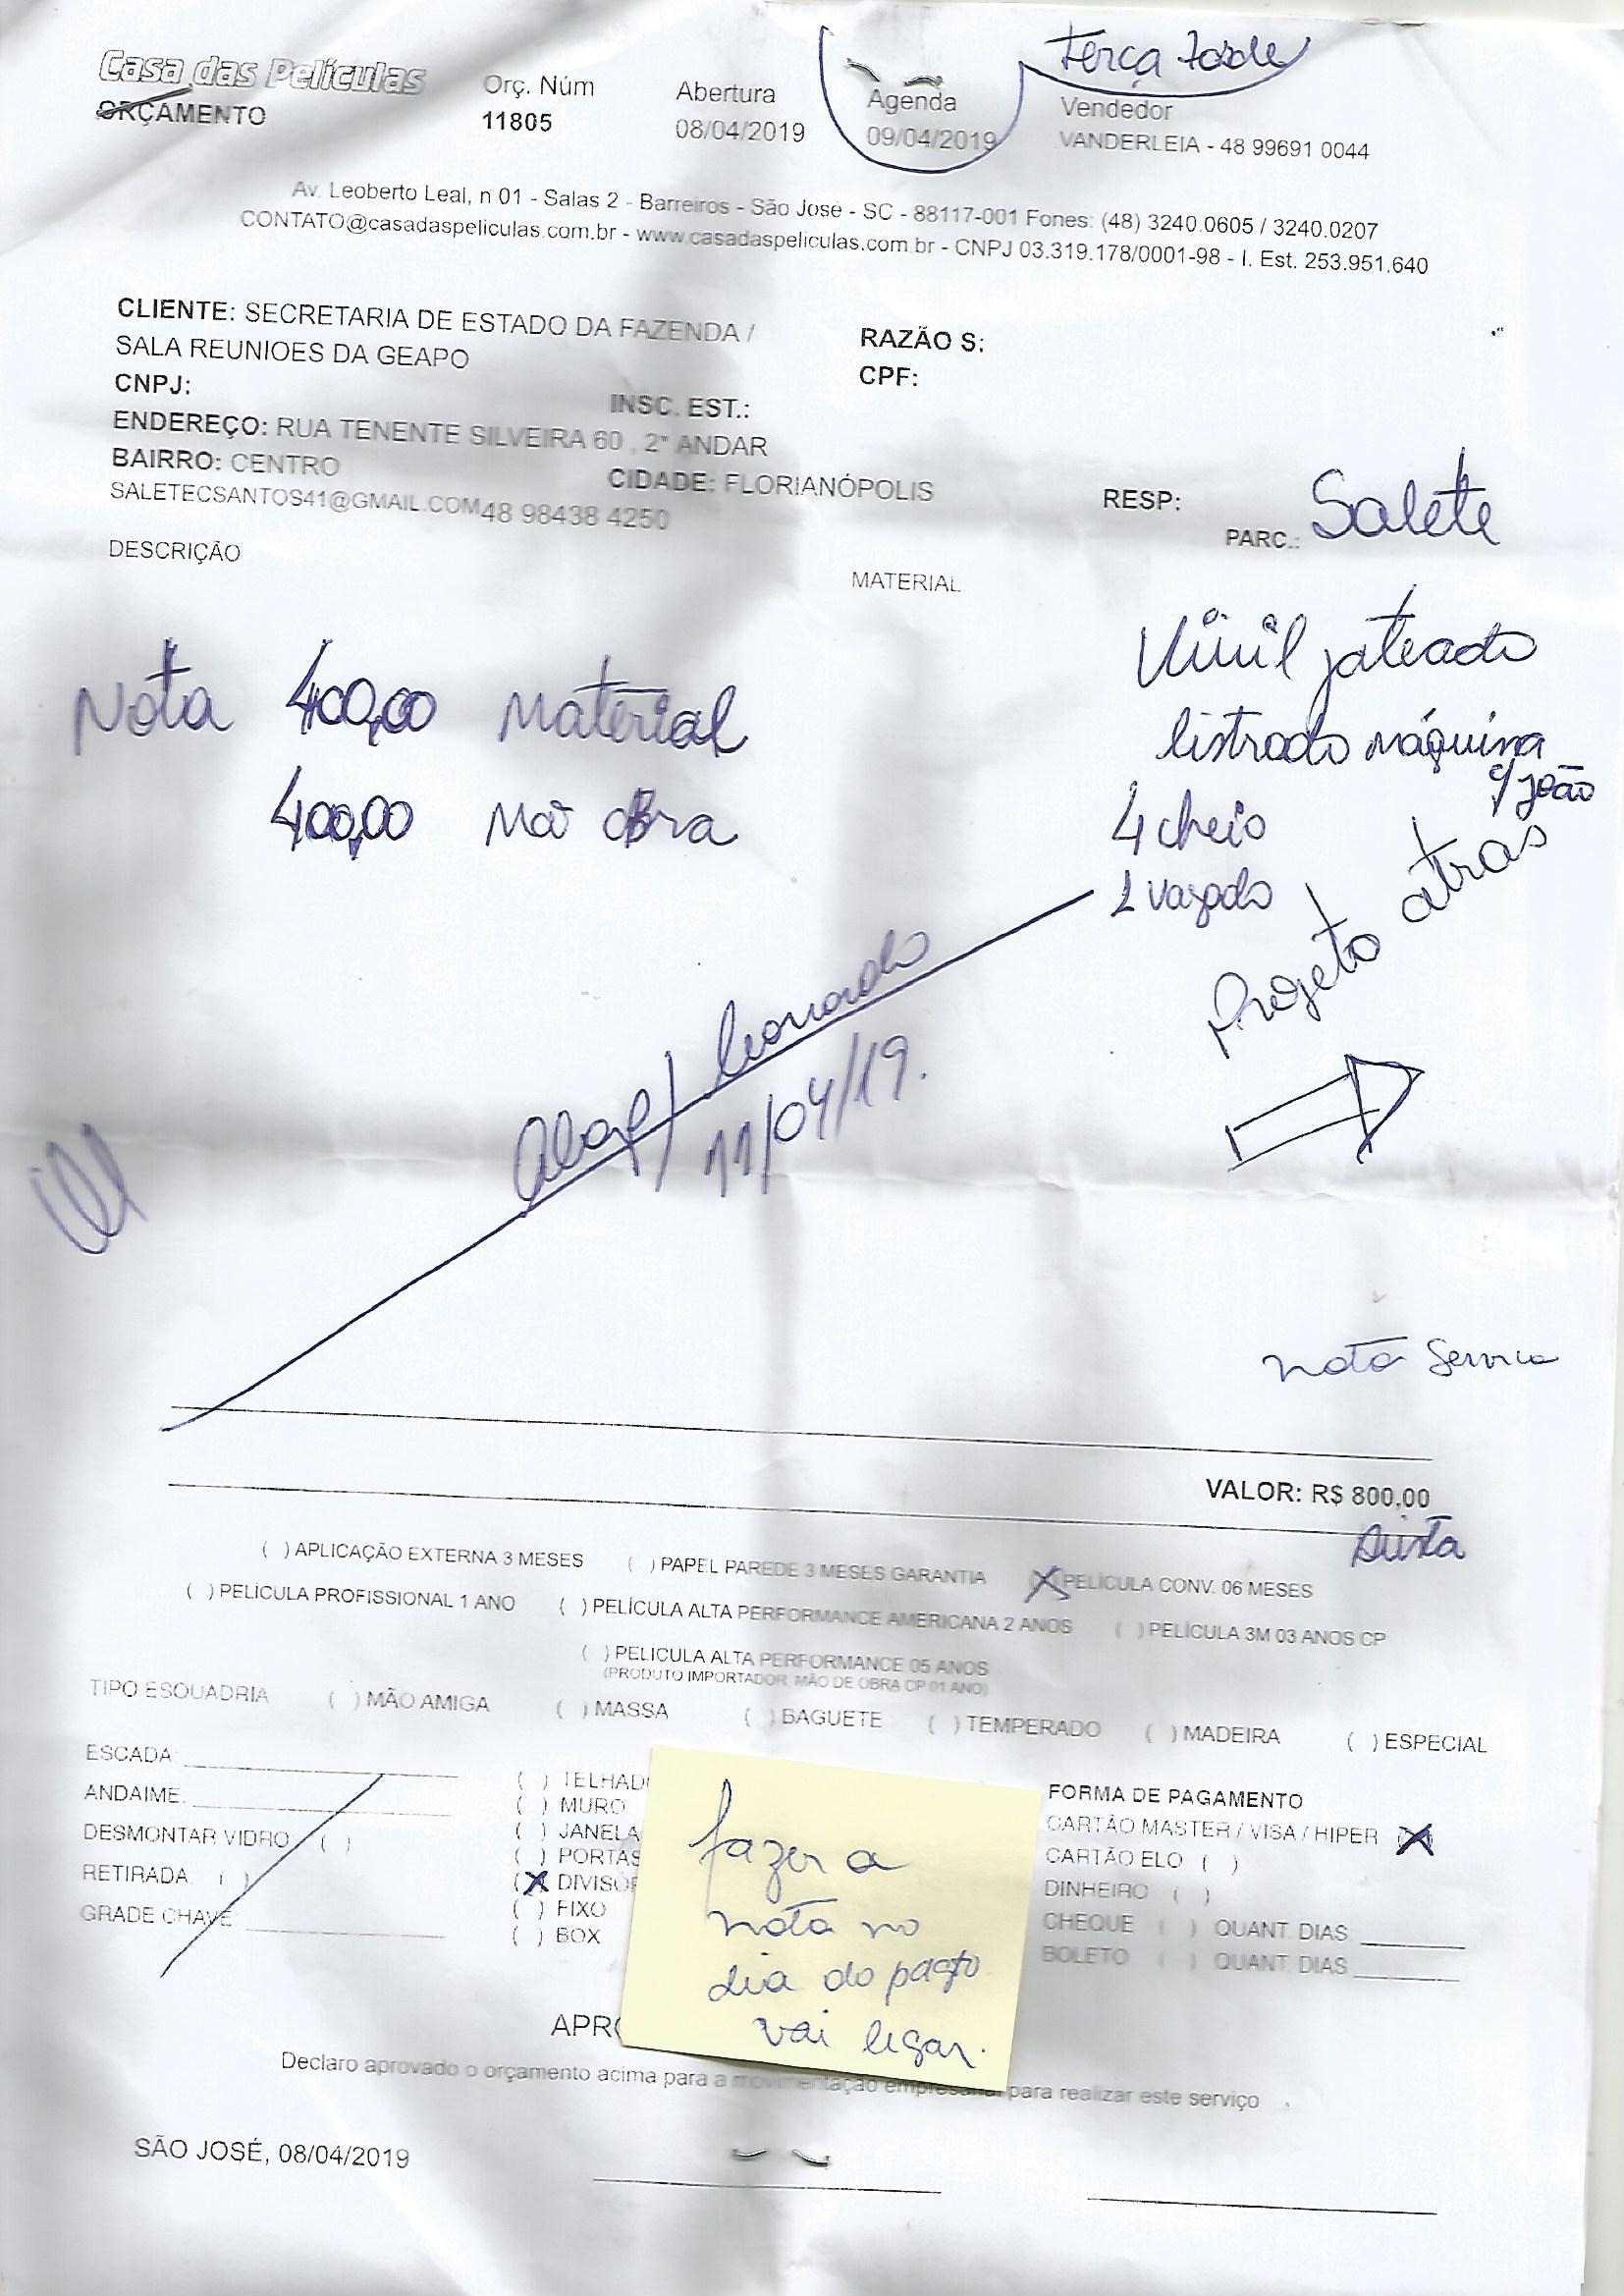 Casa das Películas
ORÇAMENTO
Orç. Núm
11805
Abertura
08/04/2019
Agenda
09/04/2019
Terça tarde
Vendedor
VANDERLEIA - 48 99691 0044
Av. Leoberto Leal, n 01 - Salas 2 - Barreiros - São José - SC - 88117-001 Fones: (48) 3240.0605 / 3240.0207
CONTATO@casadaspeliculas.com.br - www.casadaspeliculas.com.br - CNPJ 03.319.178/0001-98 - I. Est. 253.951.640
CLIENTE: SECRETARIA DE ESTADO DA FAZENDA /
SALA REUNIOES DA GEAPO
RAZÃO S:
CNPJ:
CPF:
INSC. EST.:
ENDEREÇO: RUA TENENTE SILVEIRA 60 , 2° ANDAR
BAIRRO: CENTRO
CIDADE: FLORIANÓPOLIS
SALETECSANTOS41@GMAIL.COM 48 98438 4250
RESP:
PARC.:
Salete
DESCRIÇÃO
MATERIAL
Nota 400,00 Material
400,00 Mão obra
Vinil jateado
listrado máquina
c/ João
4 cheio
1 vazado
Projeto atras
Leonardo
11/04/19.
nota Servico
VALOR: R$ 800,00
( ) APLICAÇÃO EXTERNA 3 MESES ( ) PAPEL PAREDE 3 MESES GARANTIA (X) PELÍCULA CONV. 06 MESES
( ) PELÍCULA PROFISSIONAL 1 ANO ( ) PELÍCULA ALTA PERFORMANCE AMERICANA 2 ANOS ( ) PELÍCULA 3M 03 ANOS CP
( ) PELICULA ALTA PERFORMANCE 05 ANOS
(PRODUTO IMPORTADOR. MÃO DE OBRA CP 01 ANO)
TIPO ESQUADRIA ( ) MÃO AMIGA ( ) MASSA ( ) BAGUETE ( ) TEMPERADO ( ) MADEIRA ( ) ESPECIAL
ESCADA:
ANDAIME:
DESMONTAR VIDRO ( )
RETIRADA ( )
GRADE CHAVE
( ) TELHAD
( ) MURO
( ) JANELA
( ) PORTAS
(X) DIVISÓR
( ) FIXO
( ) BOX
fazer a
nota no
dia do pagto
vai ligar.
FORMA DE PAGAMENTO
CARTÃO MASTER / VISA / HIPER (X)
CARTÃO ELO ( )
DINHEIRO ( )
CHEQUE ( ) QUANT. DIAS
BOLETO ( ) QUANT. DIAS
APRO
Declaro aprovado o orçamento acima para a movimentação empresarial para realizar este serviço
SÃO JOSÉ, 08/04/2019